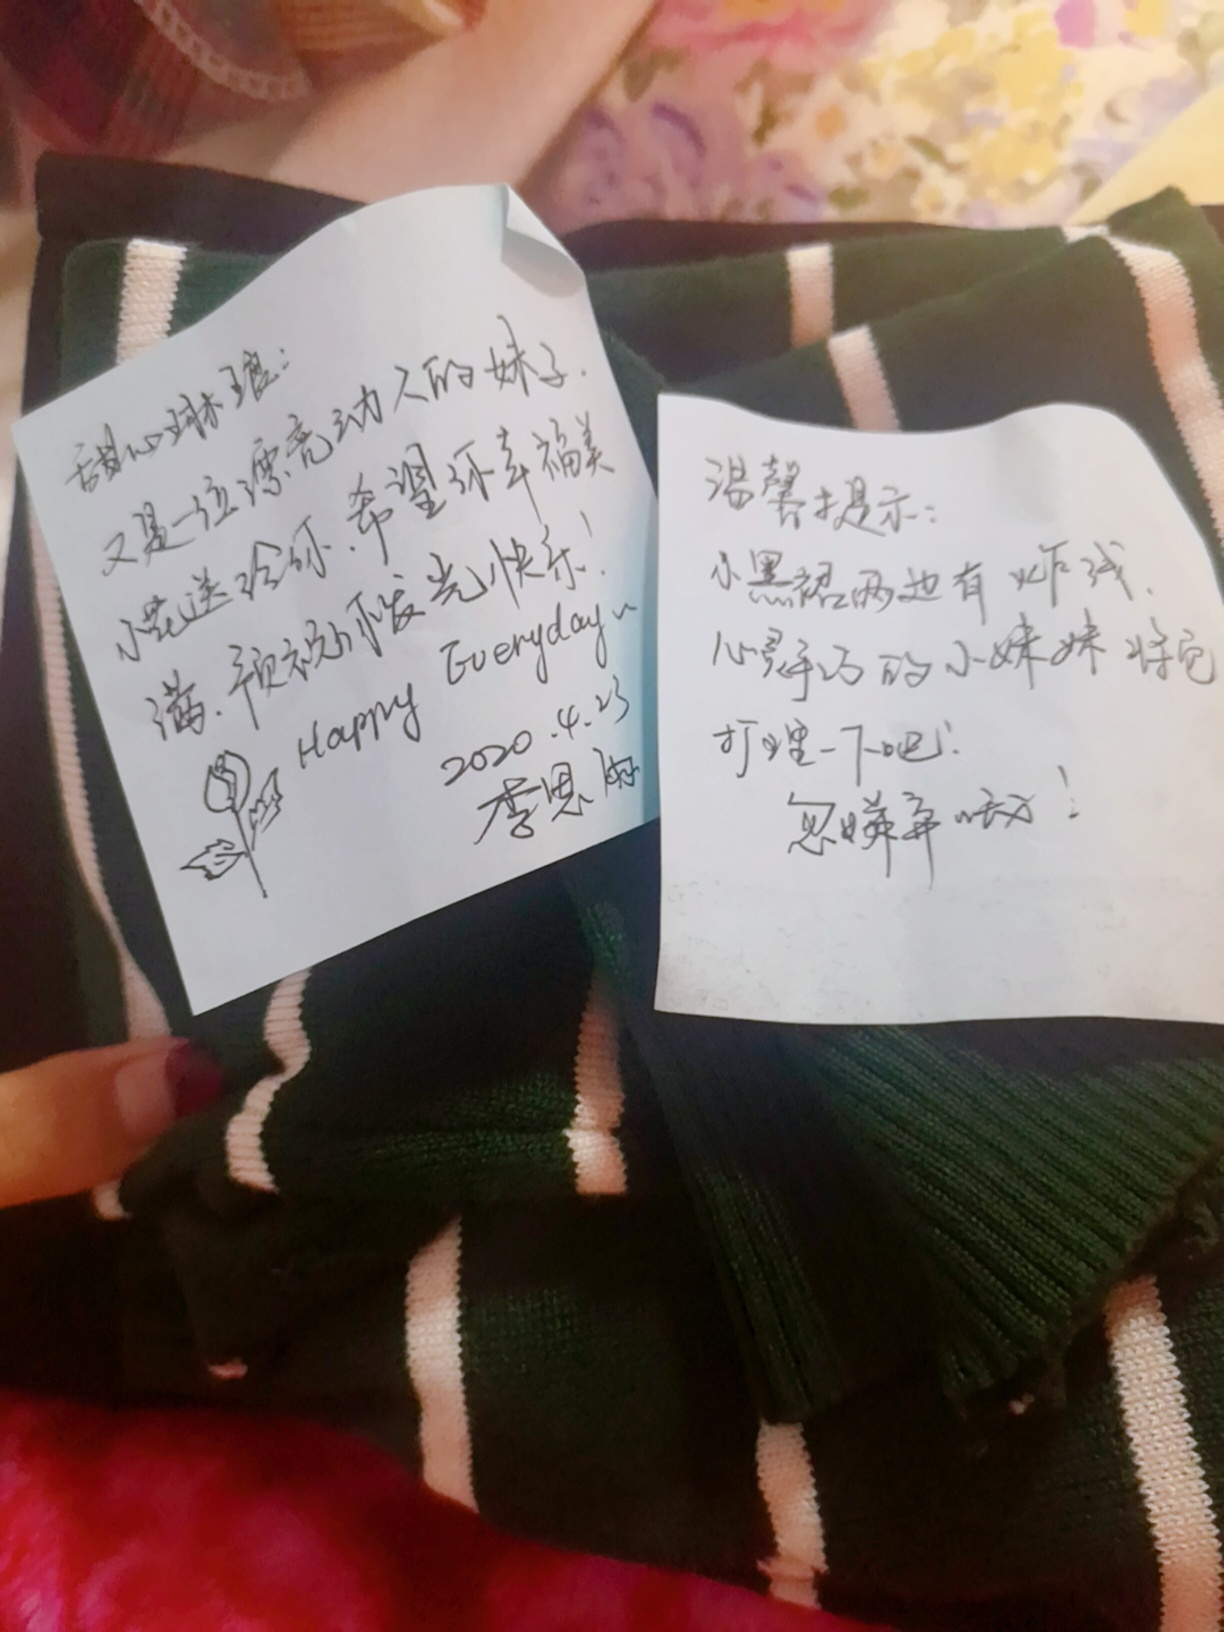 甜心琳瑶:
又是一位漂亮动人的妹子.
小花送给你.希望你幸福美
满.预祝你发光快乐!
Happy Everyday~
2020.4.23
李思
温馨提示:
小黑裙两边有炸线.
心灵手巧的小妹妹将它
打理一下吧!
忽嫌弃哦!